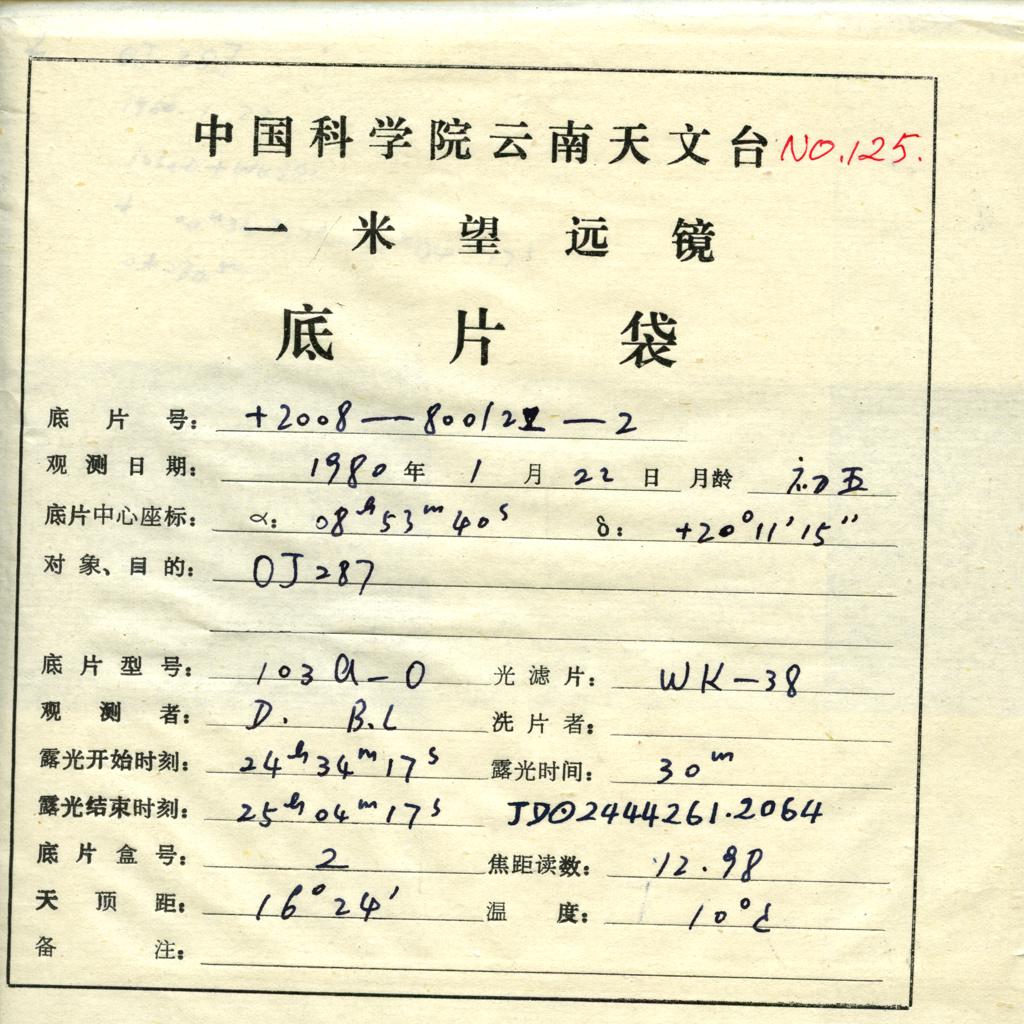 中国科学院云南天文台 NO.125.
一米望远镜
底片袋
底片号： +2008—80012—2
观测日期： 1980年 1月 22日 月龄 初五
底片中心座标： α： 08ʰ53ᵐ40ˢ δ： +20°11′15″
对象、目的： OJ 287
底片型号： 103a-O 光滤片： WK-38
观测者： D. B.L 洗片者：
露光开始时刻： 24ʰ34ᵐ17ˢ 露光时间： 30ᵐ
露光结束时刻： 25ʰ04ᵐ17ˢ JD⊙2444261.2064
底片盒号： 2 焦距读数： 12.98
天顶距： 16°24′ 温度： 10°C
备注：